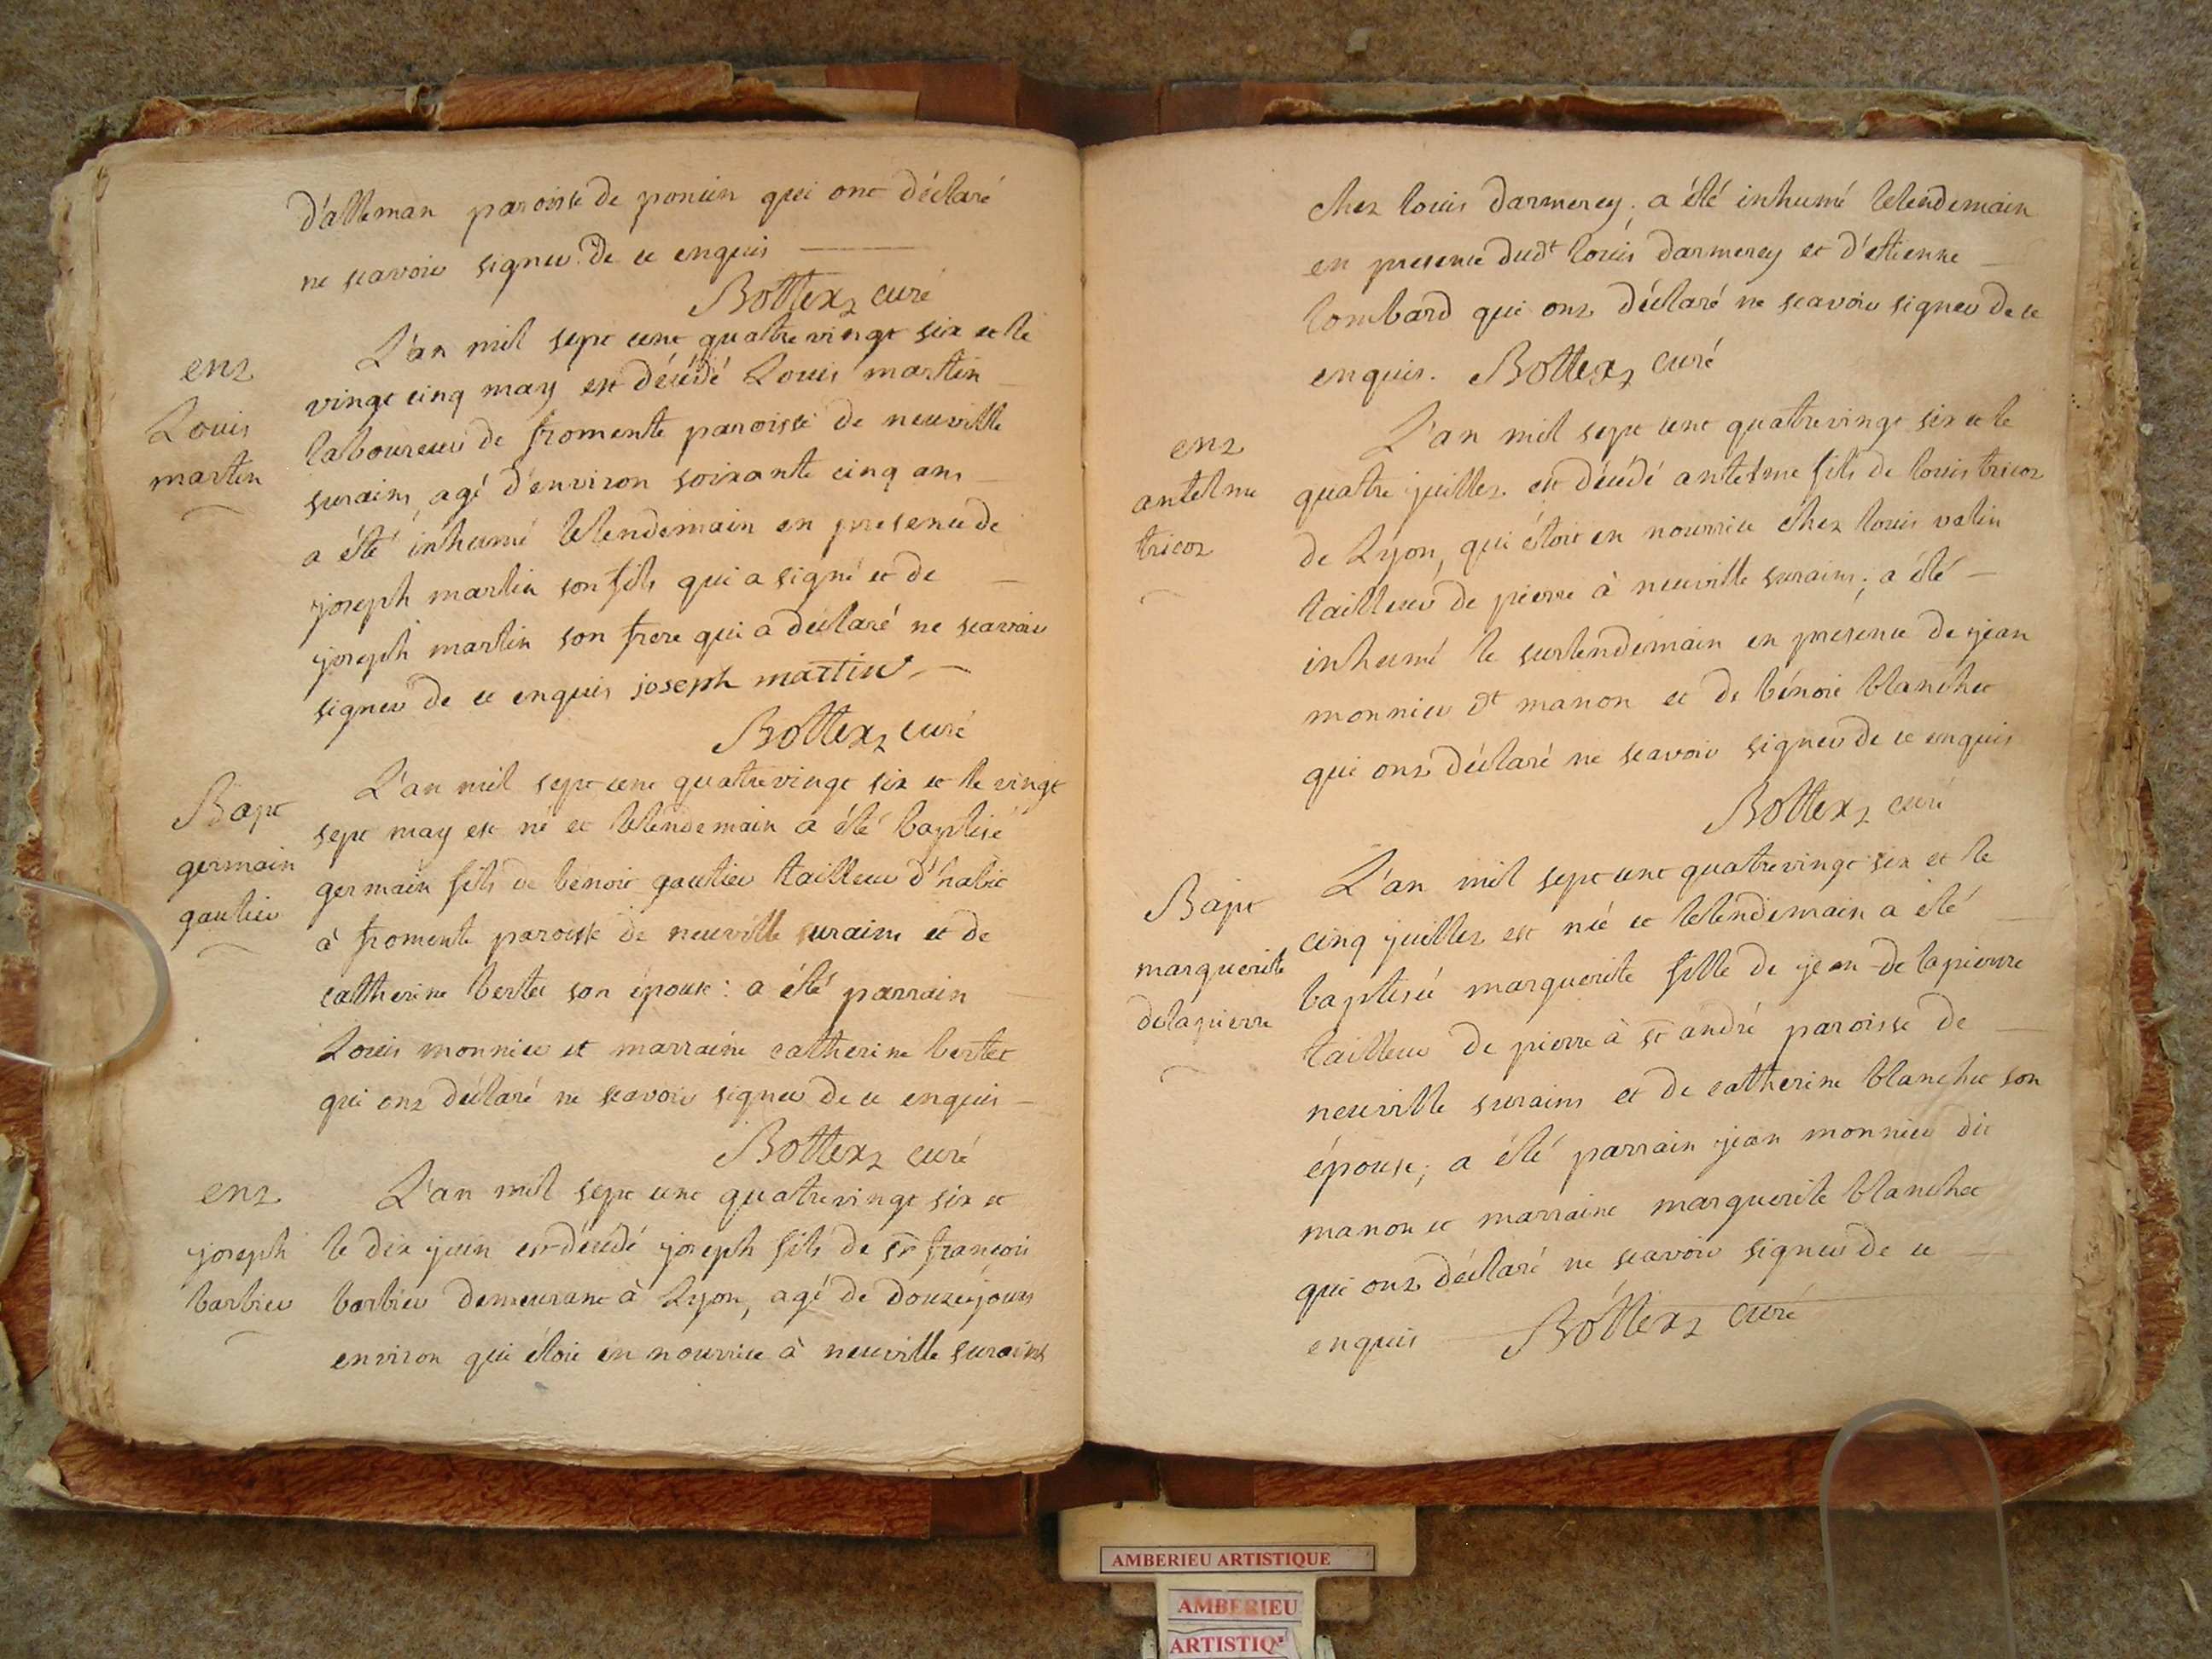 d'alleman paroisse de poncin qui ont déclaré
ne scavoir signer de ce enquis
Bottex, curé
ent
Louis
martin
L'an mil sept cent quatre vingt six et le
vingt cinq may est décédé Louis martin
laboureur de fromente paroisse de neuville
surains, agé d'environ soixante cinq ans
a été inhumé lelendemain en presence de
joseph martin son fils qui a signé et de
joseph martin son frere qui a déclaré ne scavoir
signer de ce enquis joseph martin
Bottex, curé
Bapt
germain
gautier
L'an mil sept cent quatrevingt six et le vingt
sept may est né et lelendemain a été baptisé
germain fils de benoit gautier tailleur d'habit
à fromente paroisse de neuville surains et de
catherine bertet son épouse : a été parrain
Louis monnier et marraine catherine bertet
qui ont déclaré ne scavoir signer de ce enquis
Bottex, curé
ent
joseph
barbier
L'an mil sept cent quatrevingt six et
le dix juin est décédé joseph fils de sr françois
barbier demeurant à Lyon, agé de douze jours
environ qui étoit en nourrice à neuville surains
chez louis darmerey ; a été inhumé lelendemain
en presence dudt louis darmerey et d'etienne
lombard qui ont déclaré ne scavoir signer de ce
enquis. Bottex, curé
ent
antelme
tricot
L'an mil sept cent quatrevingt six et le
quatre juillet est décédé antelme fils de louis tricot
de Lyon, qui étoit en nourrice chez louis valin
tailleur de pierre à neuville surains ; a été
inhumé le surlendemain en presence de jean
monnier dt manon et de bénoit blanchet
qui ont déclaré ne scavoir signer de ce enquis
Bottex, curé
Bapt
marguerite
delapierre
L'an mil sept cent quatrevingt six et le
cinq juillet est née et lelendemain a été
baptisée marguerite fille de jean delapierre
tailleur de pierre à st andré paroisse de
neuville surains et de catherine blanchet son
épouse ; a été parrain jean monnier dit
manon et marraine marguerite blanchet
qui ont déclaré ne scavoir signer de ce
enquis Bottex, curé
AMBERIEU ARTISTIQUE
AMBERIEU
ARTISTIQ